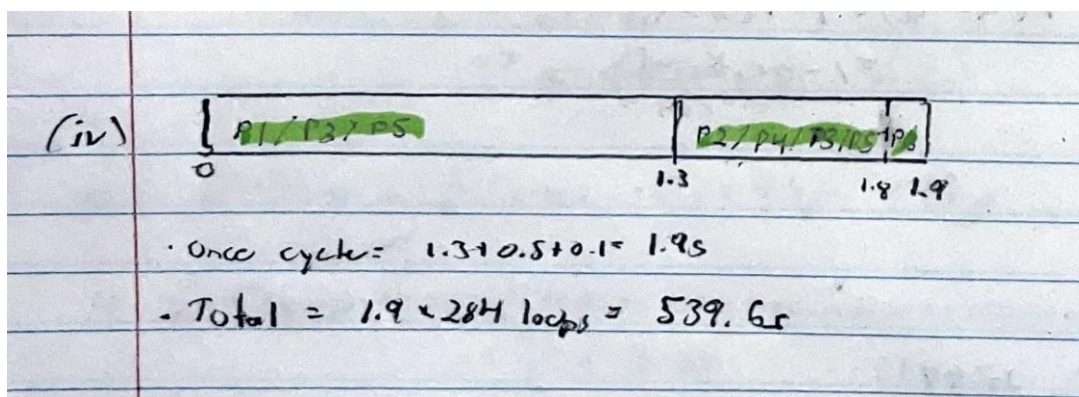 (iv) P1/P3/P5 P2/P4/P3/P5 P6
0 1.3 1.8 1.9
· Once cycle= 1.3+0.5+0.1= 1.9s
· Total = 1.9 × 284 loops = 539.6s